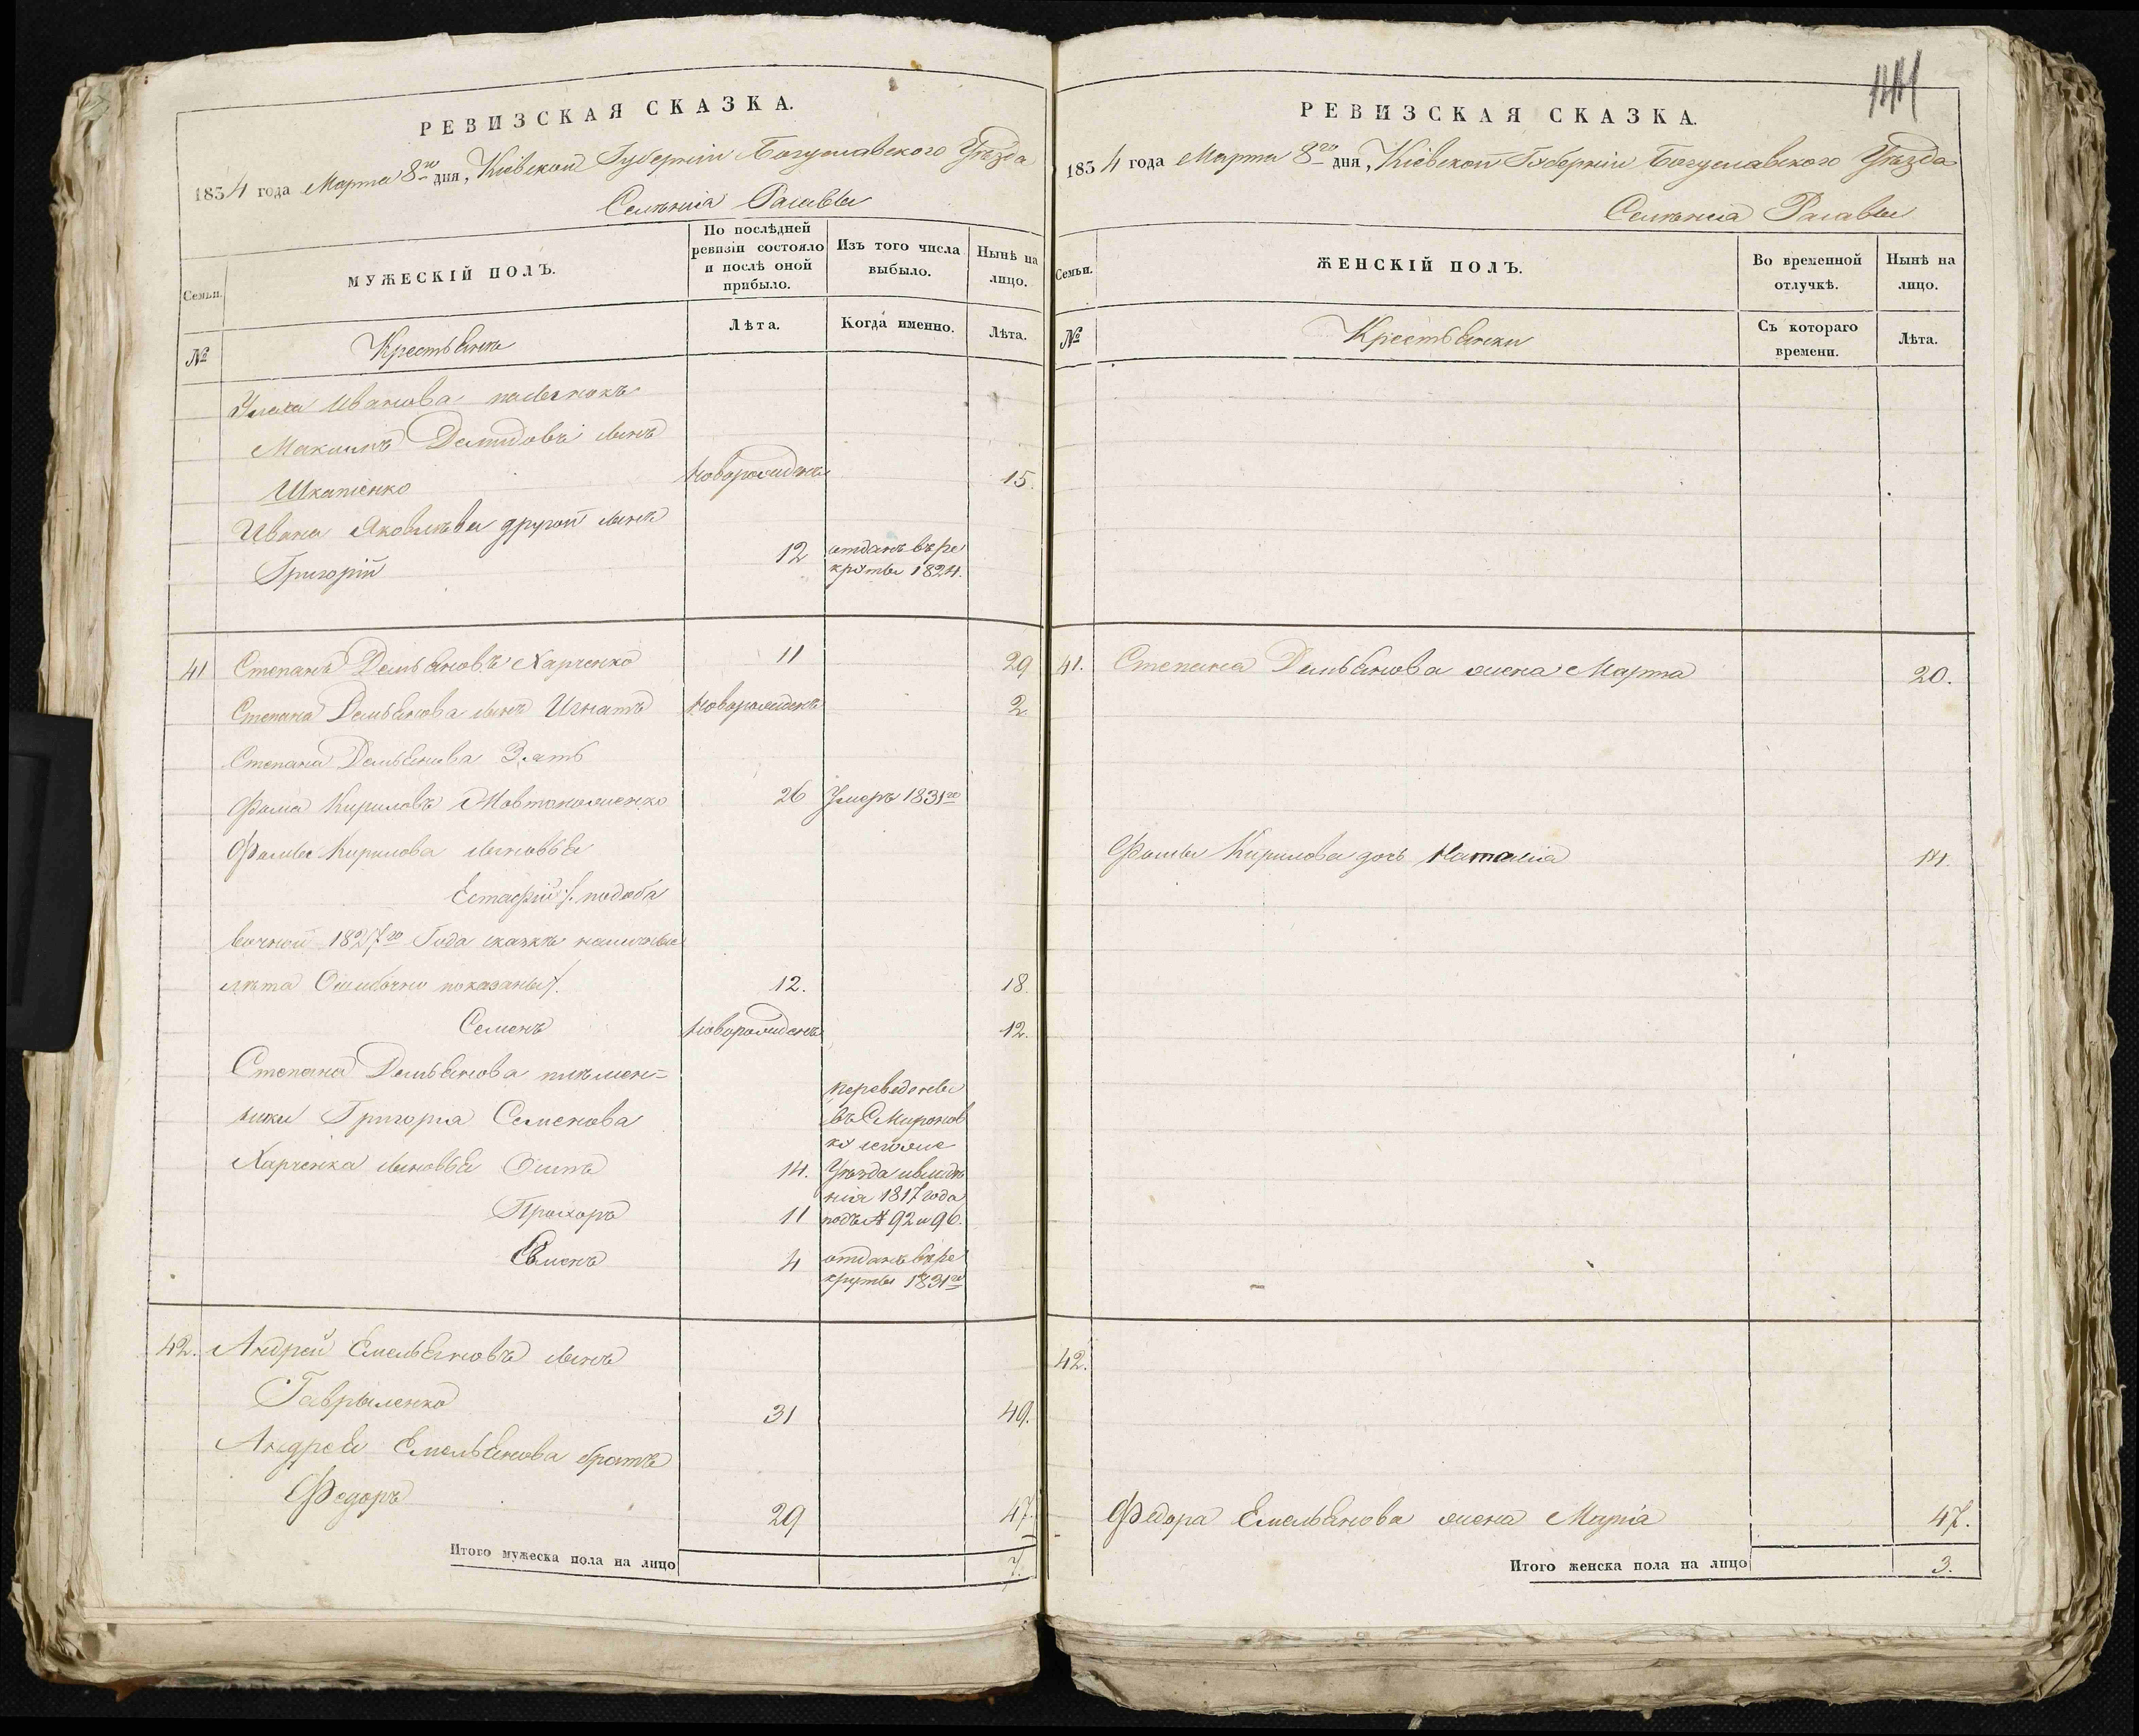 РЕВИЗСКАЯ СКАЗКА.
1834 года Марта 8го дня, Кіевской Губерніи Богуславского Уѣзда
Селѣнія Расавы
Семьи.
МУЖЕСКІЙ ПОЛЪ.
По послѣдней ревизіи состояло и послѣ оной прибыло.
Изъ того числа выбыло.
Нынѣ на лицо.
№
Крестьянѣ
Лѣта.
Когда именно.
Лѣта.
Иванова пасынокъ
Максимъ Демидовъ сынъ
Шкапенко новорожденъ 15.
Ивана Яковлѣва другой сынъ
Григорій 12 отданъ въ ре
круты 1824.
41 Степанъ Демьяновъ Харченко 11 29
Степана Демьянова сынъ Игнатъ новорожденъ 2
Степана Демьянова Зять
Фома Кириловъ 26 Умеръ 1831го
Фомы Кирилова сыновья
Естафій /: по
1827го Года сказкѣ
лѣта Ошибочно показаны :/. 12. 18
Семенъ новорожденъ 12.
Степана Демьянова племян-
ники Григорія Семенова
переведены
въ С Миронов
ку
Харченка сыновья Осипъ 14. Уѣзда
1817 года
Прохоръ 11 подъ № 92 и 96.
Семенъ 4 отданъ въ ре
круты 1831го
42. Андрей Емельяновъ сынъ
Гаврыленко 31 49.
Андрея Емельянова братъ
Федоръ 29 47.
Итого мужеска пола на лицо 7.
РЕВИЗСКАЯ СКАЗКА.
1834 года Марта 8го дня, Кіевской Губерніи Богуславского Уѣзда
Селѣнія Расавы
Семьи.
ЖЕНСКІЙ ПОЛЪ.
Во временной отлучкѣ.
Нынѣ на лицо.
№
Крестьянки
Съ котораго времени.
Лѣта.
41. Степана Демьянова жена Марта 20.
Фомы Кирилова дочь Наталія 14.
42.
Федора Емельянова жена Марія 47.
Итого женска пола на лицо 3.